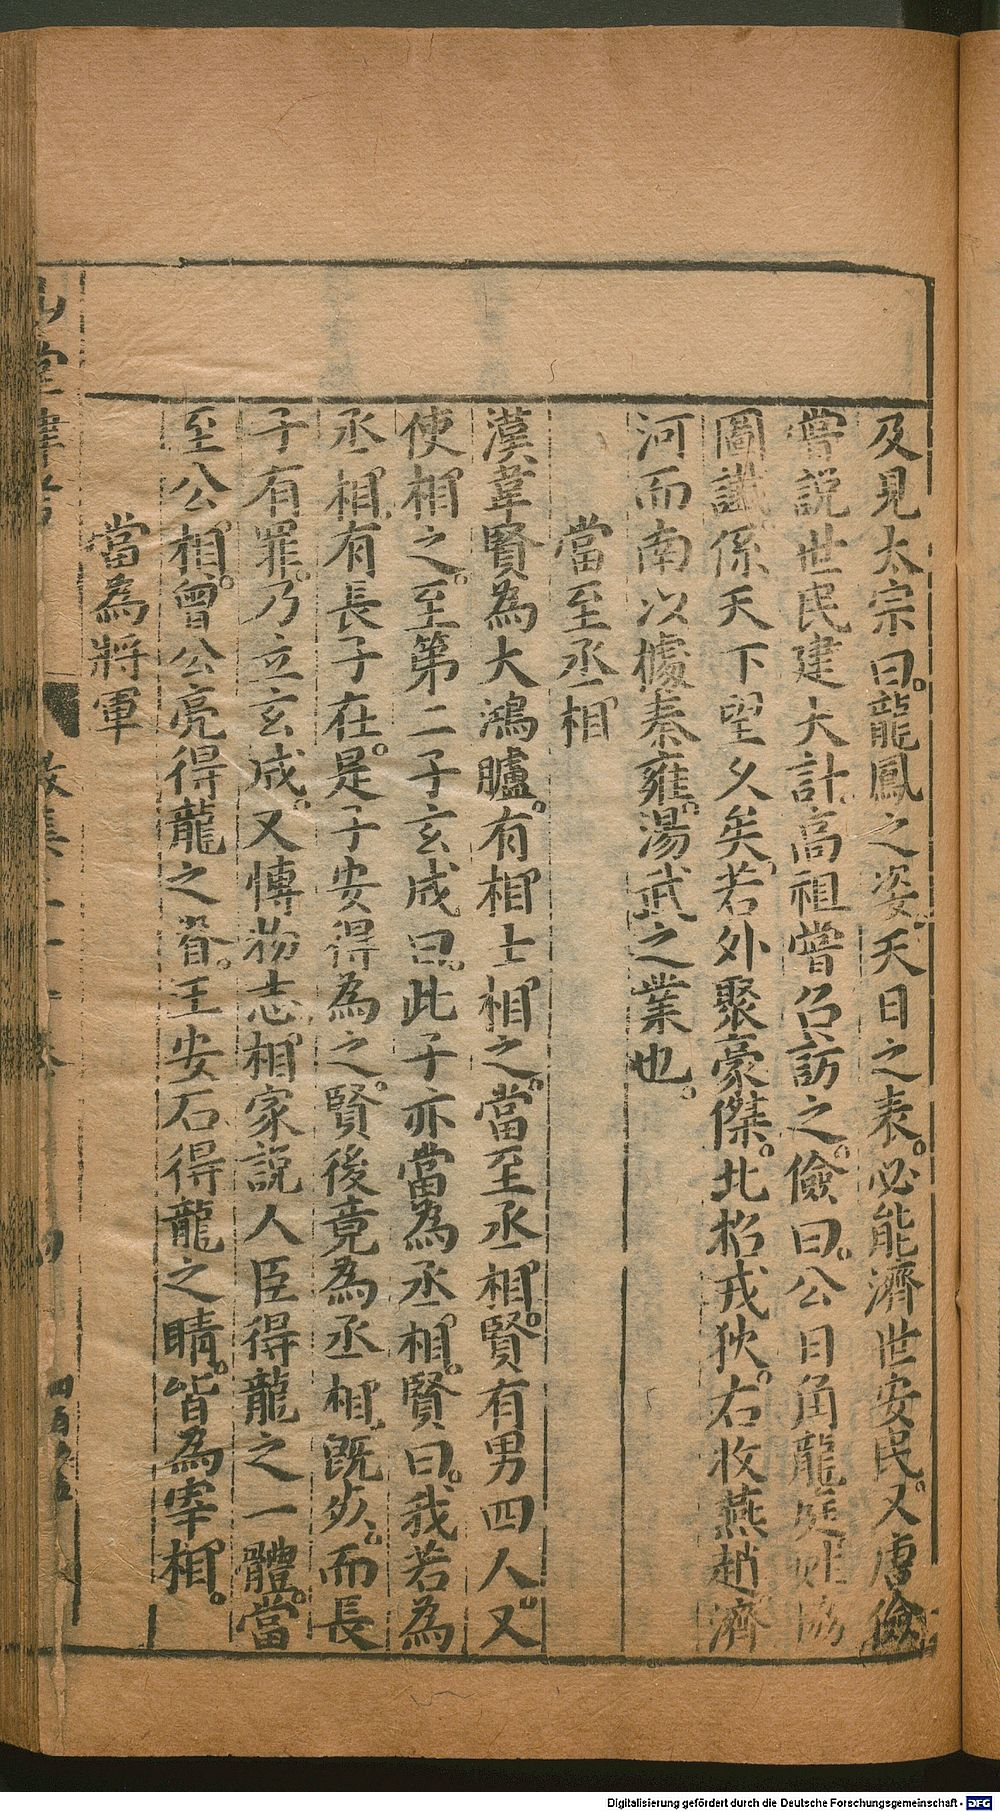 及見太宗曰。龍鳳之姿。天日之表。必能濟世安民。又唐儉
嘗說世民建大計。高祖嘗召訪之。儉曰。公日角龍庭姓協
圖讖。係天下望久矣。若外聚豪傑。北招戎狄。右收燕趙濟
河而南以據秦雍。湯武之業也。
當至丞相
漢韋賢為大鴻臚。有相士相之。當至丞相。賢有男四人又
使相之。至第二子玄成曰。此子亦當為丞相。賢曰。我若為
丞相。有長子在。是子安得為之。賢後竟為丞相。既死。而長
子有罪。乃立玄成。又博物志相家說人臣得龍之一體。當
至公相。曾公亮得龍之脊。王安石得龍之睛。皆為宰相。
當為將軍
山堂肆考
四百
Digitalisierung gefördert durch die Deutsche Forschungsgemeinschaft - DFG